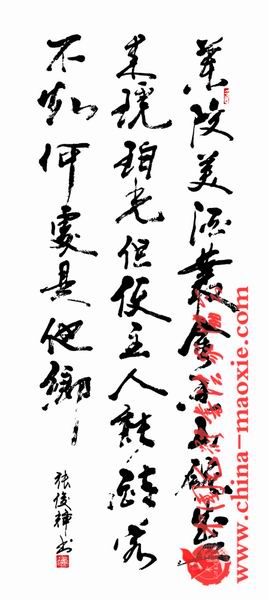 蘭陵美酒鬱金香玉碗盛
来琥珀光但使主人能醉客
不知何處是他鄉
張俊书
www.china-maoxie.com